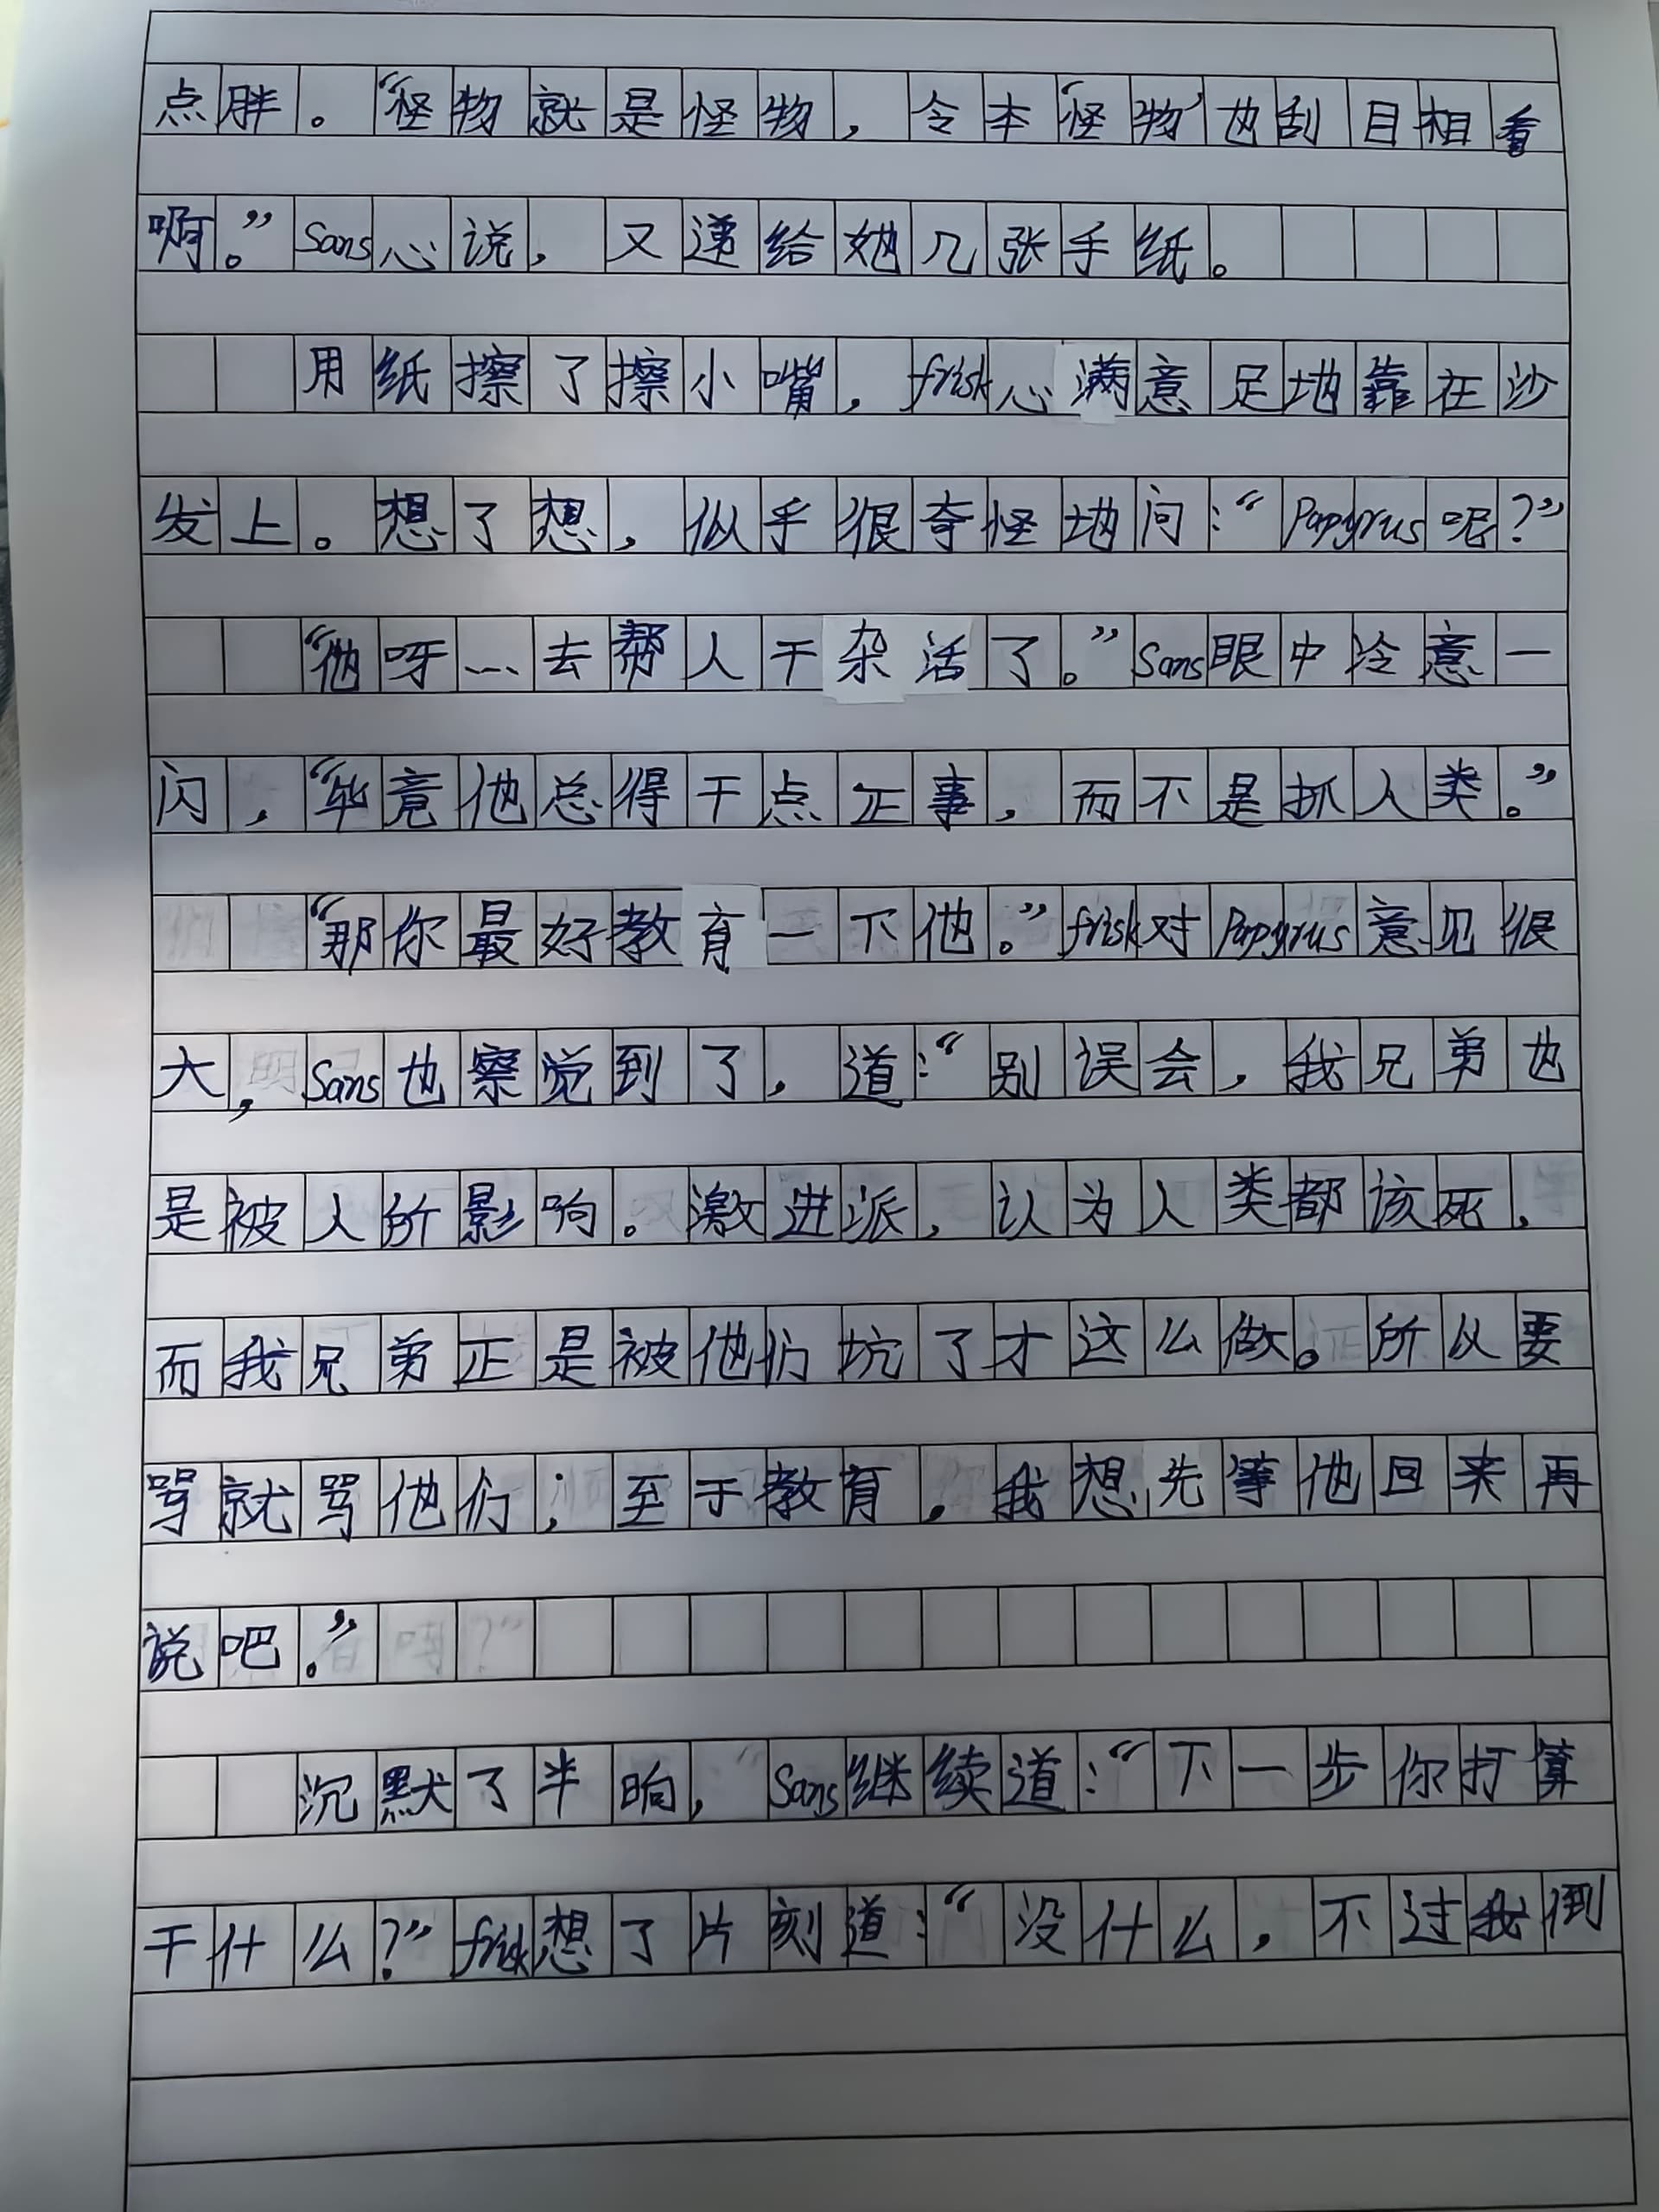 点胖。“怪物就是怪物，令本‘怪物’也刮目相看
啊。”Sans心说，又递给她几张手纸。
用纸擦了擦小嘴，frisk心满意足地靠在沙
发上。想了想，似乎很奇怪地问：“Papyrus呢？”
“他呀……去帮人干杂活了。”Sans眼中冷意一
闪，“毕竟他总得干点正事，而不是抓人类。”
“那你最好教育一下他。”frisk对Papyrus意见很
大，Sans也察觉到了，道：“别误会，我兄弟也
是被人所影响。激进派，认为人类都该死，
而我兄弟正是被他们坑了才这么做。所以要
骂就骂他们；至于教育，我想先等他回来再
说吧。”
沉默了半晌，Sans继续道：“下一步你打算
干什么？”frisk想了片刻道：“没什么，不过我倒